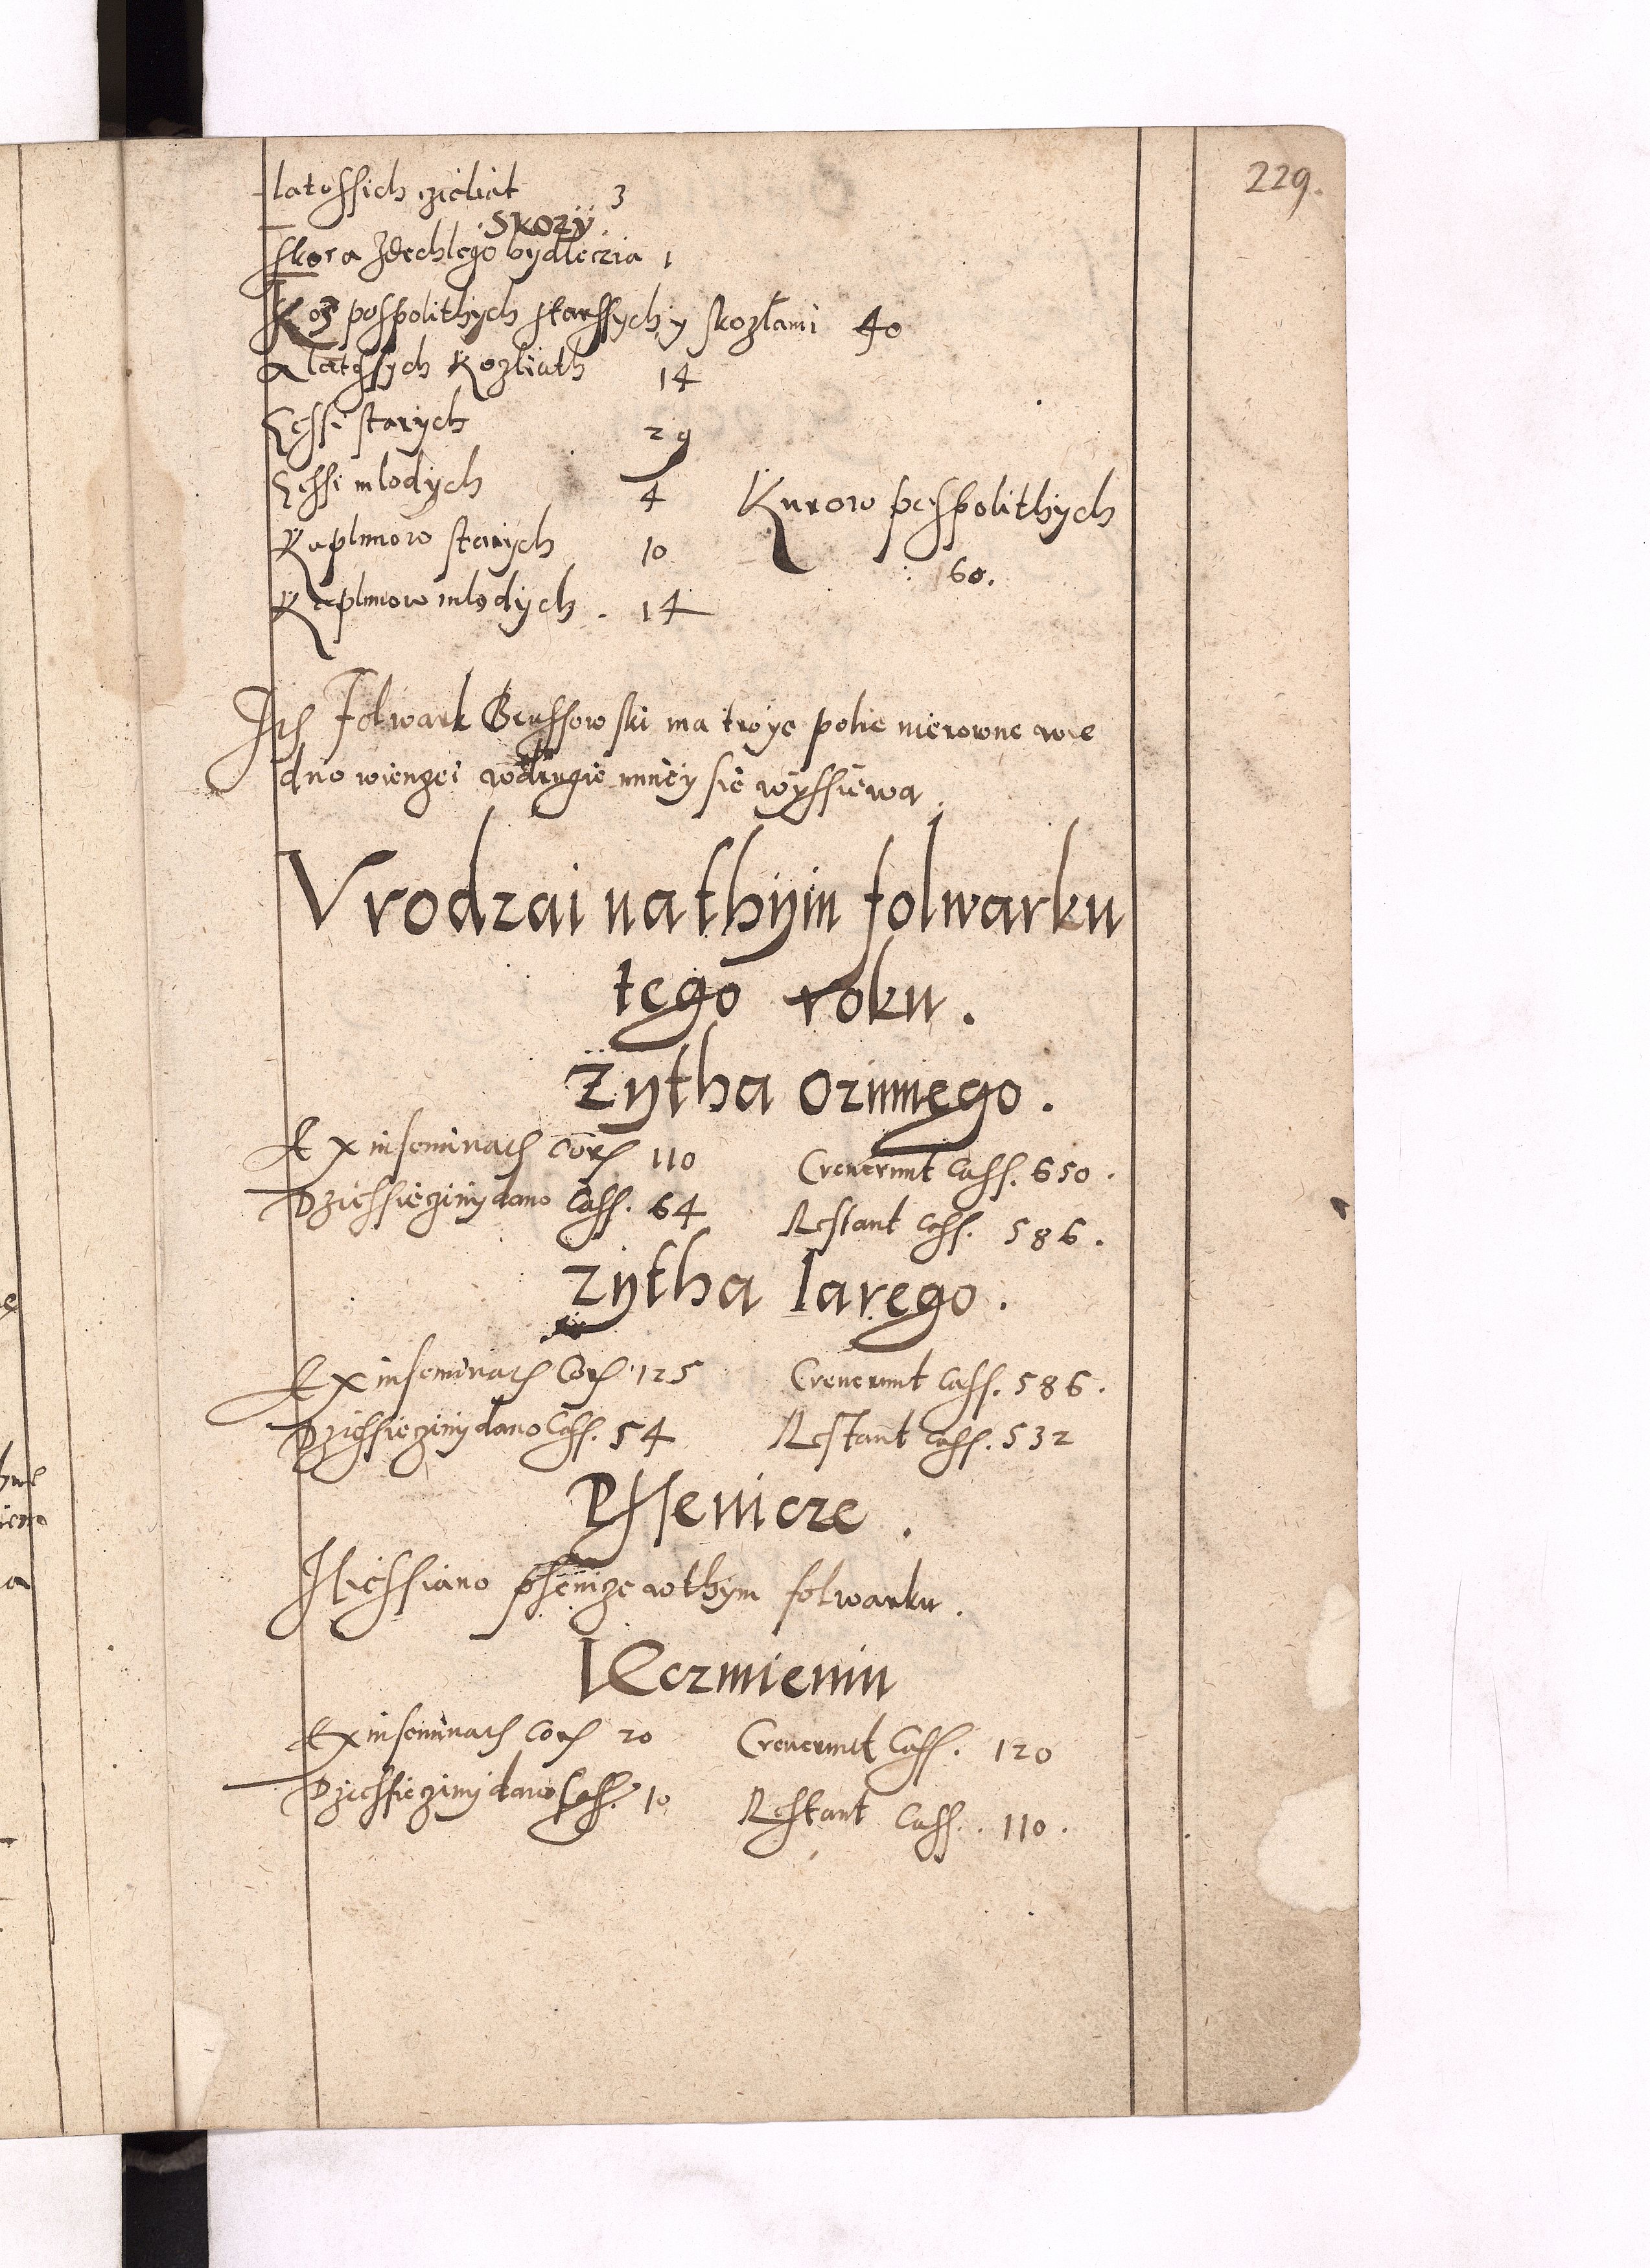 229.
latossich zieliat 3
Skory
skora zdechlego bydleczia 1
Koz pospolithych starssych y skozlami 40
a latossych Kozliath 14
Gessi starych 29
Gessi mlodych 4
Kurow pospolithych
Kaplunow starych 10
60.
Kaplunow mlodych . 14
Folwark Grussowski ma troye polie nierowne w ie
dno wienzei w drugie mniey sie wyssiewa
Vrodzai na thym folwarku
tego roku.
Zytha Ozimiego.
Ex inseminatis Cor 110 Creverunt Cass. 650.
Dziessieziny dano Cass. 64 Restant Cass. 586.
Zytha Iarego.
Ex inseminatis Cor 125 Creverunt Cass. 586.
Dziessieziny dano Cass. 54 Restant Cass. 532
Pssenicze.
Niessiano psenize w thym folwarku.
IEczmieniu
Ex inseminatis Cor 20 Creverunt Cass. 120
Dziessieziny dano Cass. 10 Restant Cass. 110.